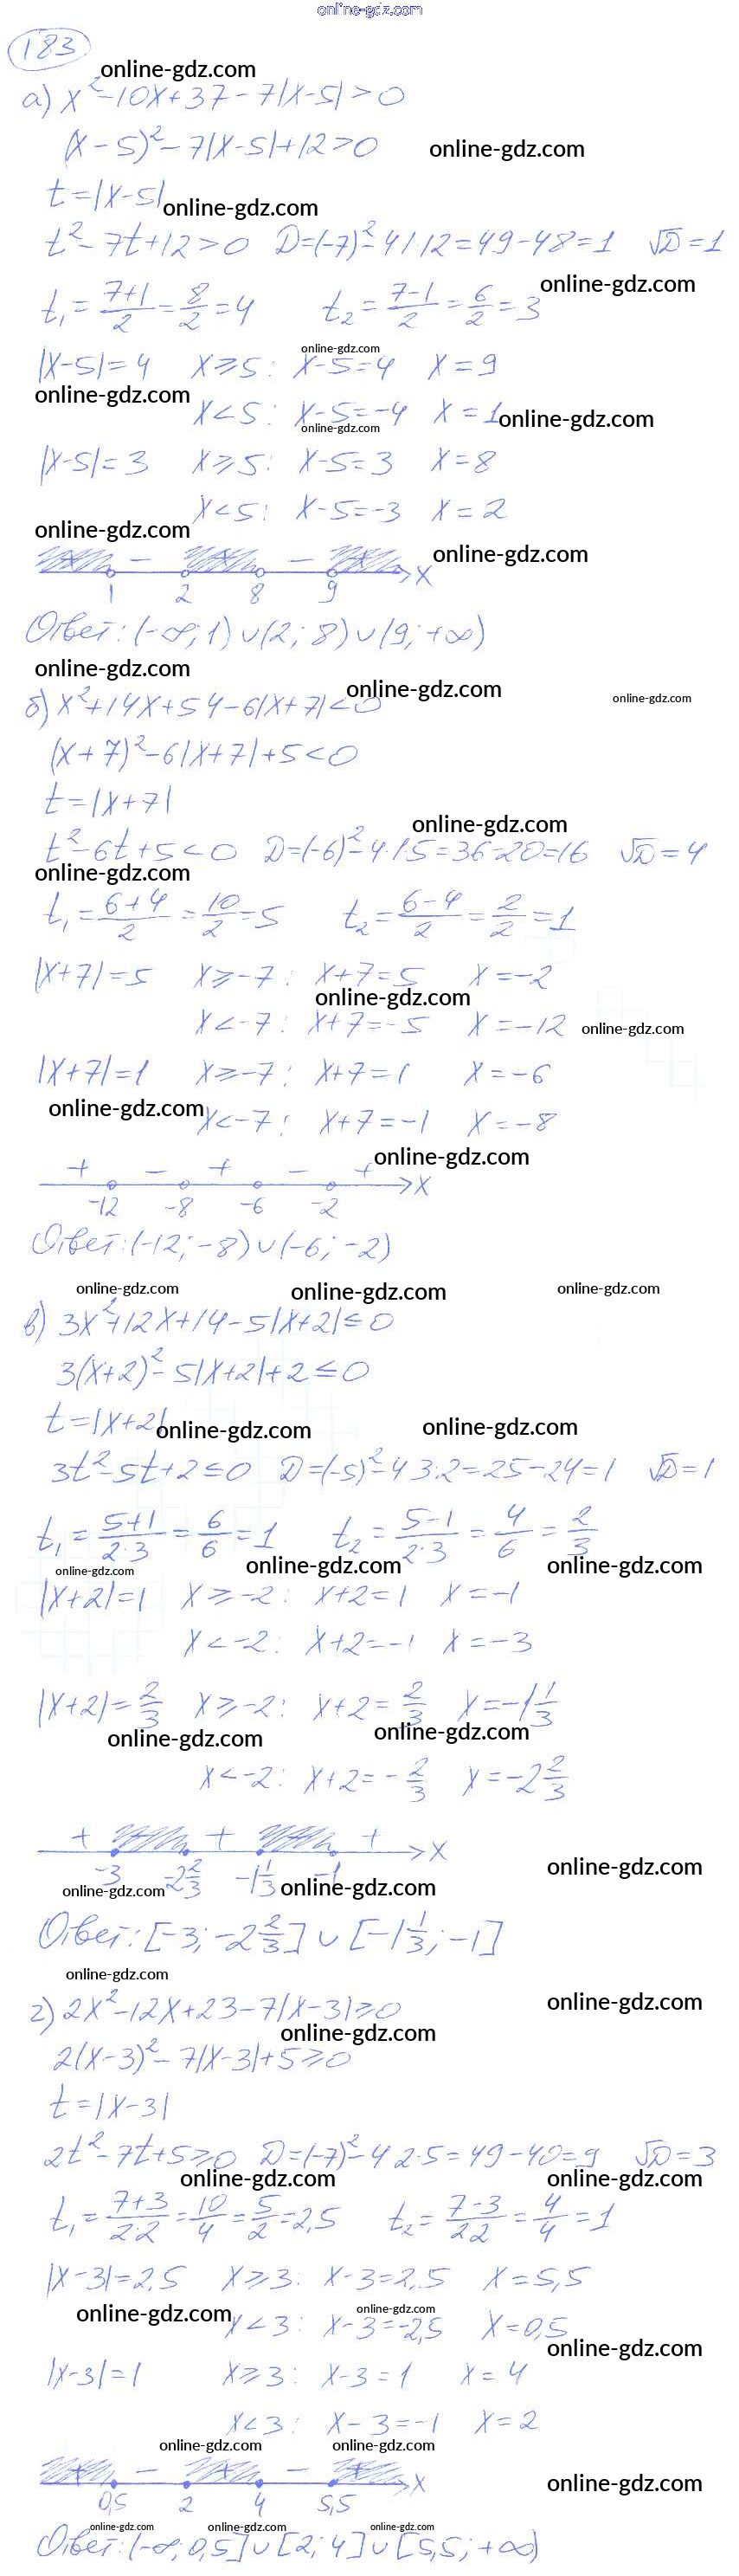 online-gdz.com
183
online-gdz.com
а) x²-10x+37-7|x-5|>0
(x-5)²-7|x-5|+12>0
online-gdz.com
t=|x-5|
online-gdz.com
t²-7t+12>0 D=(-7)²-4·1·12=49-48=1 √D=1
online-gdz.com
t₁=(7+1)/2=8/2=4 t₂=(7-1)/2=6/2=3
online-gdz.com
|x-5|=4 x≥5: x-5=4 x=9
online-gdz.com
x<5: x-5=-4 x=1
online-gdz.com
online-gdz.com
|x-5|=3 x≥5: x-5=3 x=8
x<5: x-5=-3 x=2
online-gdz.com
online-gdz.com
+ - + - + x
1 2 8 9
Ответ: (-∞; 1)∪(2; 8)∪(9; +∞)
online-gdz.com
online-gdz.com
online-gdz.com
б) x²+14x+54-6|x+7|<0
(x+7)²-6|x+7|+5<0
t=|x+7|
online-gdz.com
t²-6t+5<0 D=(-6)²-4·1·5=36-20=16 √D=4
online-gdz.com
t₁=(6+4)/2=10/2=5 t₂=(6-4)/2=2/2=1
|x+7|=5 x≥-7: x+7=5 x=-2
online-gdz.com
x<-7: x+7=-5 x=-12
online-gdz.com
|x+7|=1 x≥-7: x+7=1 x=-6
online-gdz.com
x<-7: x+7=-1 x=-8
online-gdz.com
+ - + - + x
-12 -8 -6 -2
Ответ: (-12; -8)∪(-6; -2)
online-gdz.com
online-gdz.com
online-gdz.com
в) 3x²+12x+14-5|x+2|≤0
3(x+2)²-5|x+2|+2≤0
t=|x+2|
online-gdz.com
online-gdz.com
3t²-5t+2≤0 D=(-5)²-4·3·2=25-24=1 √D=1
t₁=(5+1)/(2·3)=6/6=1 t₂=(5-1)/(2·3)=4/6=2/3
online-gdz.com
online-gdz.com
online-gdz.com
|x+2|=1 x≥-2: x+2=1 x=-1
x<-2: x+2=-1 x=-3
|x+2|=2/3 x≥-2: x+2=2/3 x=-1 1/3
online-gdz.com
online-gdz.com
x<-2: x+2=-2/3 x=-2 2/3
+ + + x
-3 -2 2/3 -1 1/3 -1
online-gdz.com
online-gdz.com
online-gdz.com
Ответ: [-3; -2 2/3]∪[-1 1/3; -1]
online-gdz.com
online-gdz.com
г) 2x²-12x+23-7|x-3|≥0
online-gdz.com
2(x-3)²-7|x-3|+5≥0
t=|x-3|
2t²-7t+5≥0 D=(-7)²-4·2·5=49-40=9 √D=3
online-gdz.com
online-gdz.com
t₁=(7+3)/(2·2)=10/4=5/2=2,5 t₂=(7-3)/(2·2)=4/4=1
|x-3|=2,5 x≥3: x-3=2,5 x=5,5
online-gdz.com
online-gdz.com
x<3: x-3=-2,5 x=0,5
online-gdz.com
|x-3|=1 x≥3: x-3=1 x=4
x<3: x-3=-1 x=2
online-gdz.com
online-gdz.com
+ - + - + x
online-gdz.com
0,5 2 4 5,5
online-gdz.com
online-gdz.com
online-gdz.com
Ответ: (-∞; 0,5]∪[2; 4]∪[5,5; +∞)